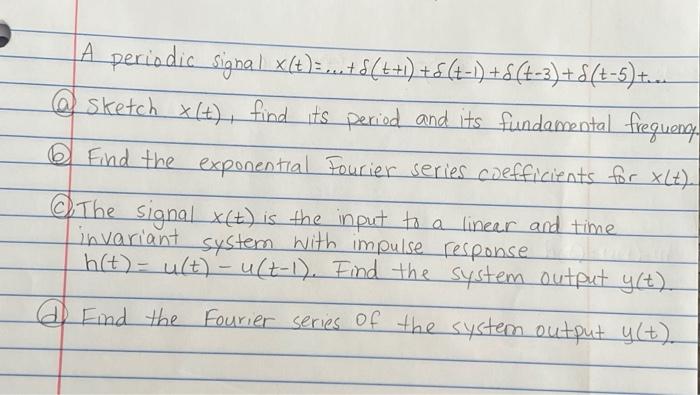 A periodic signal x(t)=...+δ(t+1)+δ(t-1)+δ(t-3)+δ(t-5)+...
ⓐ sketch x(t), find its period and its fundamental frequency.
ⓑ Find the exponential Fourier series coefficients for x(t).
ⓒ The signal x(t) is the input to a linear and time
invariant system with impulse response
h(t)= u(t)-u(t-1). Find the system output y(t).
ⓓ Find the Fourier series of the system output y(t).